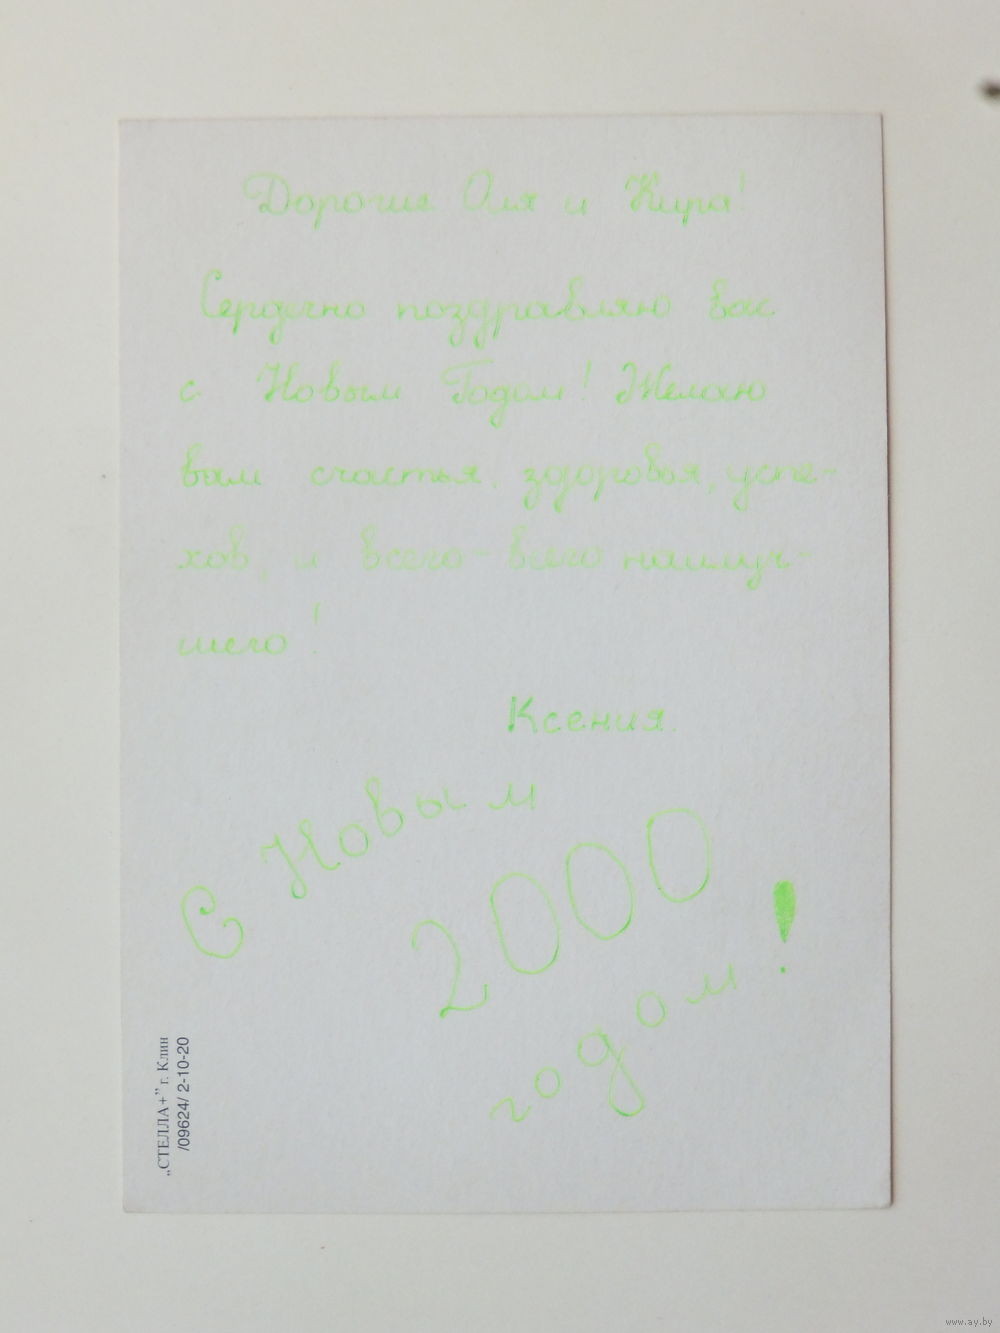 Дорогие Оля и Кира!
Сердечно поздравляю вас
с Новым Годом! Желаю
вам счастья, здоровья, успе-
хов, и всего-всего наилуч-
шего!
Ксения.
С Новым
2000
годом!
„СТЕЛЛА+” г. Клин
/09624/ 2-10-20
www.ay.by